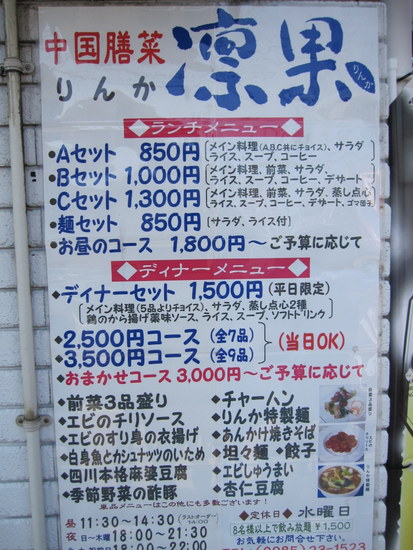 中国膳菜
りんか
凛果
りんか
◆ランチメニュー◆
・Aセット 850円〔メイン料理(A,B,C共にチョイス)、サラダ
ライス、スープ、コーヒー〕
・Bセット 1,000円〔メイン料理、前菜、サラダ、
ライス、スープ、コーヒー、デザート〕
・Cセット 1,300円〔メイン料理、前菜、サラダ、蒸し点心
ライス、スープ、コーヒー、デザート、ゴマ団子〕
・麺セット 850円〔サラダ、ライス付〕
・お昼のコース 1,800円〜ご予算に応じて
◆ディナーメニュー◆
◆ディナーセット 1,500円(平日限定)
〔メイン料理(5品よりチョイス)、サラダ、蒸し点心2種
鶏のから揚げ薬味ソース、ライス、スープ、ソフトドリンク〕
◆2,500円コース(全7品)
◆3,500円コース(全9品)
(当日OK)
◆おまかせコース 3,000円〜ご予算に応じて
◆前菜3品盛り
◆エビのチリソース
◆エビのすり身の衣揚げ
◆白身魚とカシュナッツのいため
◆四川本格麻婆豆腐
◆季節野菜の酢豚
◆チャーハン
◆りんか特製麺
◆あんかけ焼きそば
◆坦々麺 ◆餃子
◆エビしゅうまい
◆杏仁豆腐
単品メニューはこの他にも多数ございます!
昼 11:30〜14:30(ラストオーダー 14:00)
夜 日〜木曜 18:00〜21:30
18:00〜22:00
◆定休日◆ 水曜日
8名様以上で飲み放題¥1,500
お気軽にお問合せ下さい。
23-1523